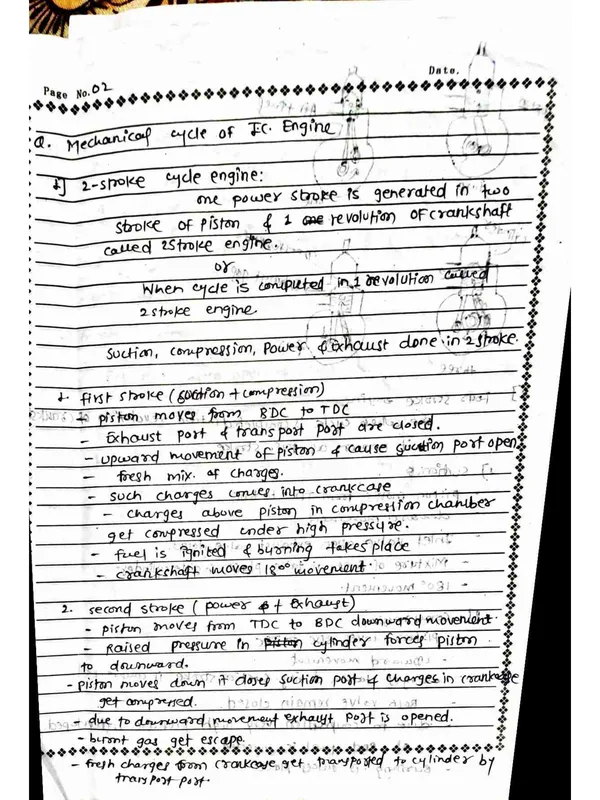 Page No. 02
Date.
Q. Mechanical cycle of I.C. Engine
1] 2-stroke cycle engine:
one power stroke is generated in two
stroke of piston & 1 revolution of crankshaft
called 2stroke engine.
or
When cycle is completed in 1 revolution called
2stroke engine
Suction, compression, Power & Exhaust done in 2stroke.
1. first stroke (suction + compression)
- piston moves from BDC to TDC
- Exhaust port & transport port are closed.
- upward movement of piston & cause suction port open
- fresh mix. of charges.
- such charges comes into crankcase
- charges above piston in compression chamber
get compressed under high pressure.
- fuel is ignited & burning takes place
- crankshaft moves 180° movement.
2. second stroke (power + Exhaust)
- piston moves from TDC to BDC downward movement
- Raised pressure in cylinder forces piston
to downward.
- piston moves down it closes suction port & charges in crankcase
get compressed.
- due to downward movement exhaust port is opened.
- burnt gas get escape.
- fresh charges from crankcase get transported to cylinder by
transport port.